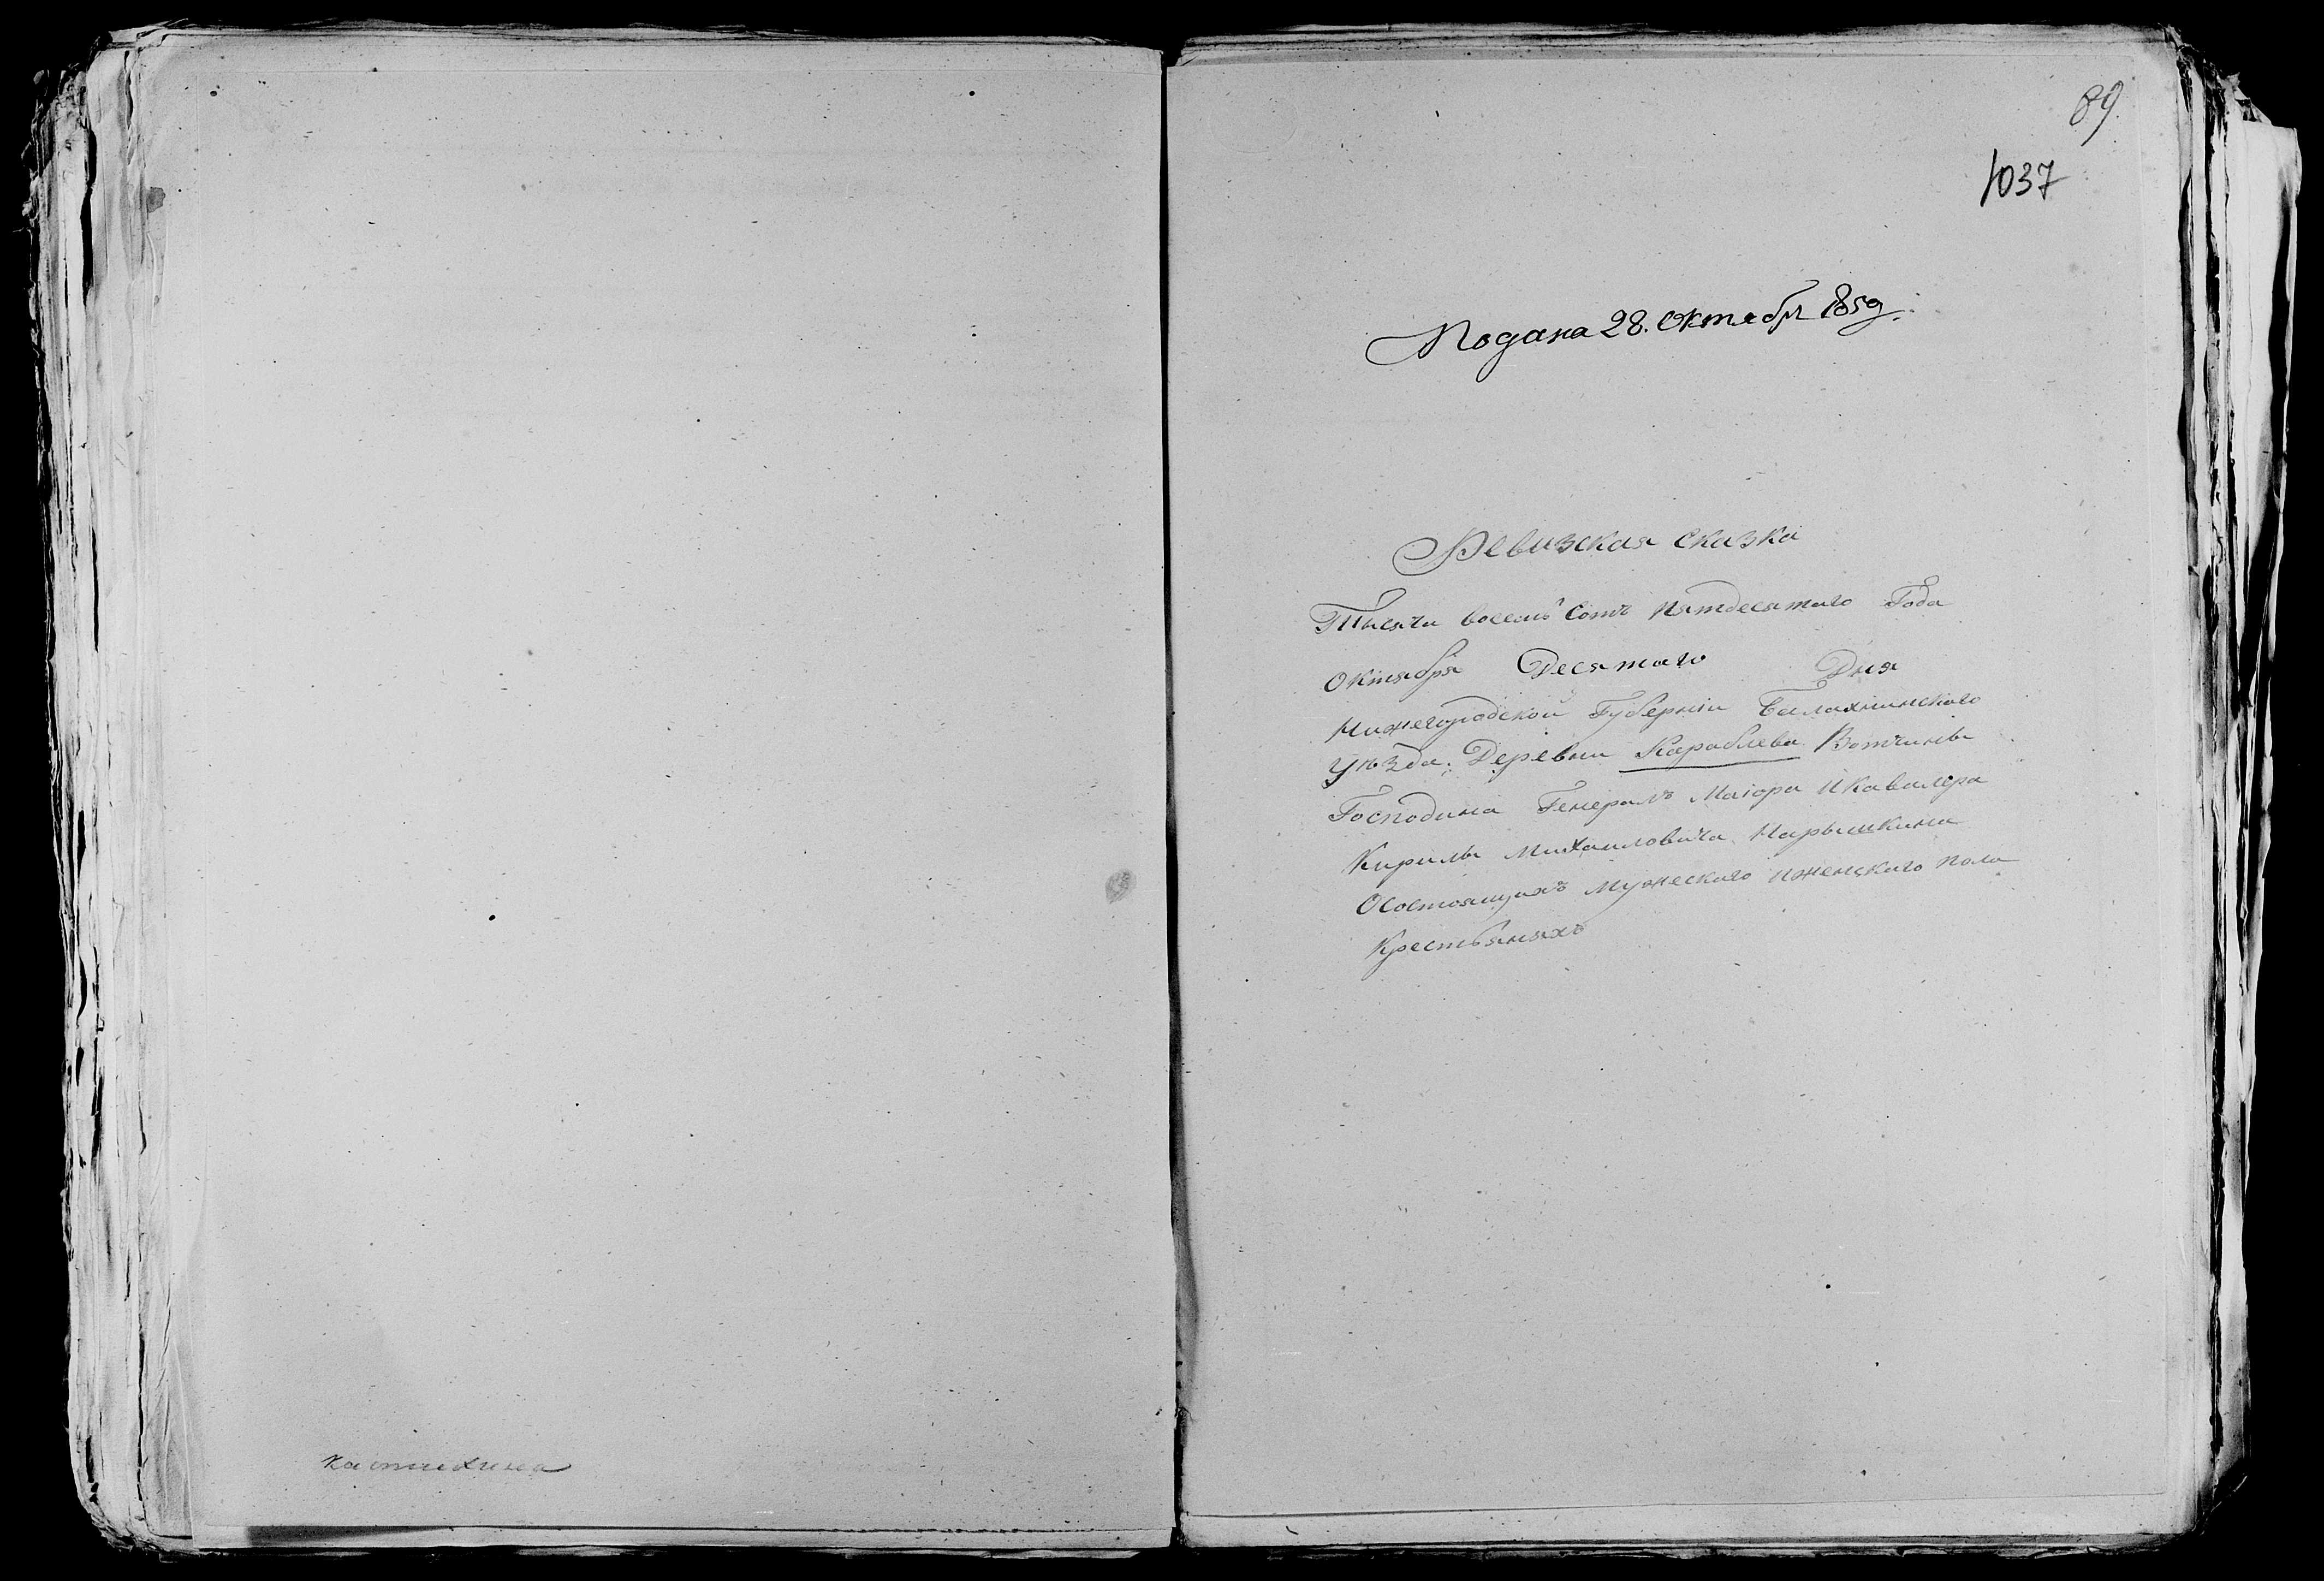 89.
1037
Подана 28. Октября 1850 г.
Ревизская сказка
Тысяча восемь сотъ пятдесятаго Года
Октября Десятаго Дня
Нижегородской Губерніи Балахнинскаго
уѣзда. Деревни Караблева Вотчины
Господина Генералъ Маіора И Кавалера
Кирилы Михаиловича Нарышкина
О состоящихъ мужескаго и женскаго пола
Крестьянахъ